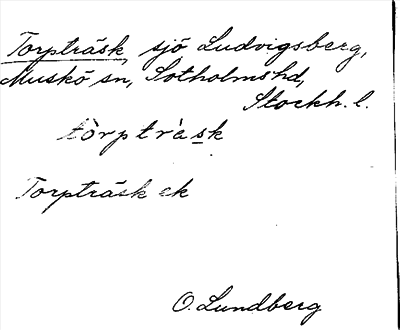 Torpträsk, sjö Ludvigsberg,
Muskö sn, Sotholmshd,
Stockh. l.
tòrptràsk
Torpträsk ek
O. Lundberg